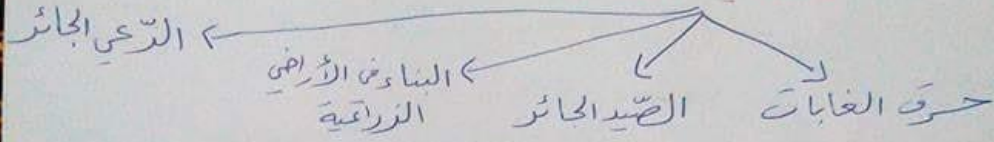 حرق الغابات
الصّيد الجائر
البناء في الأراضي
الزراعية
الرّعي الجائر